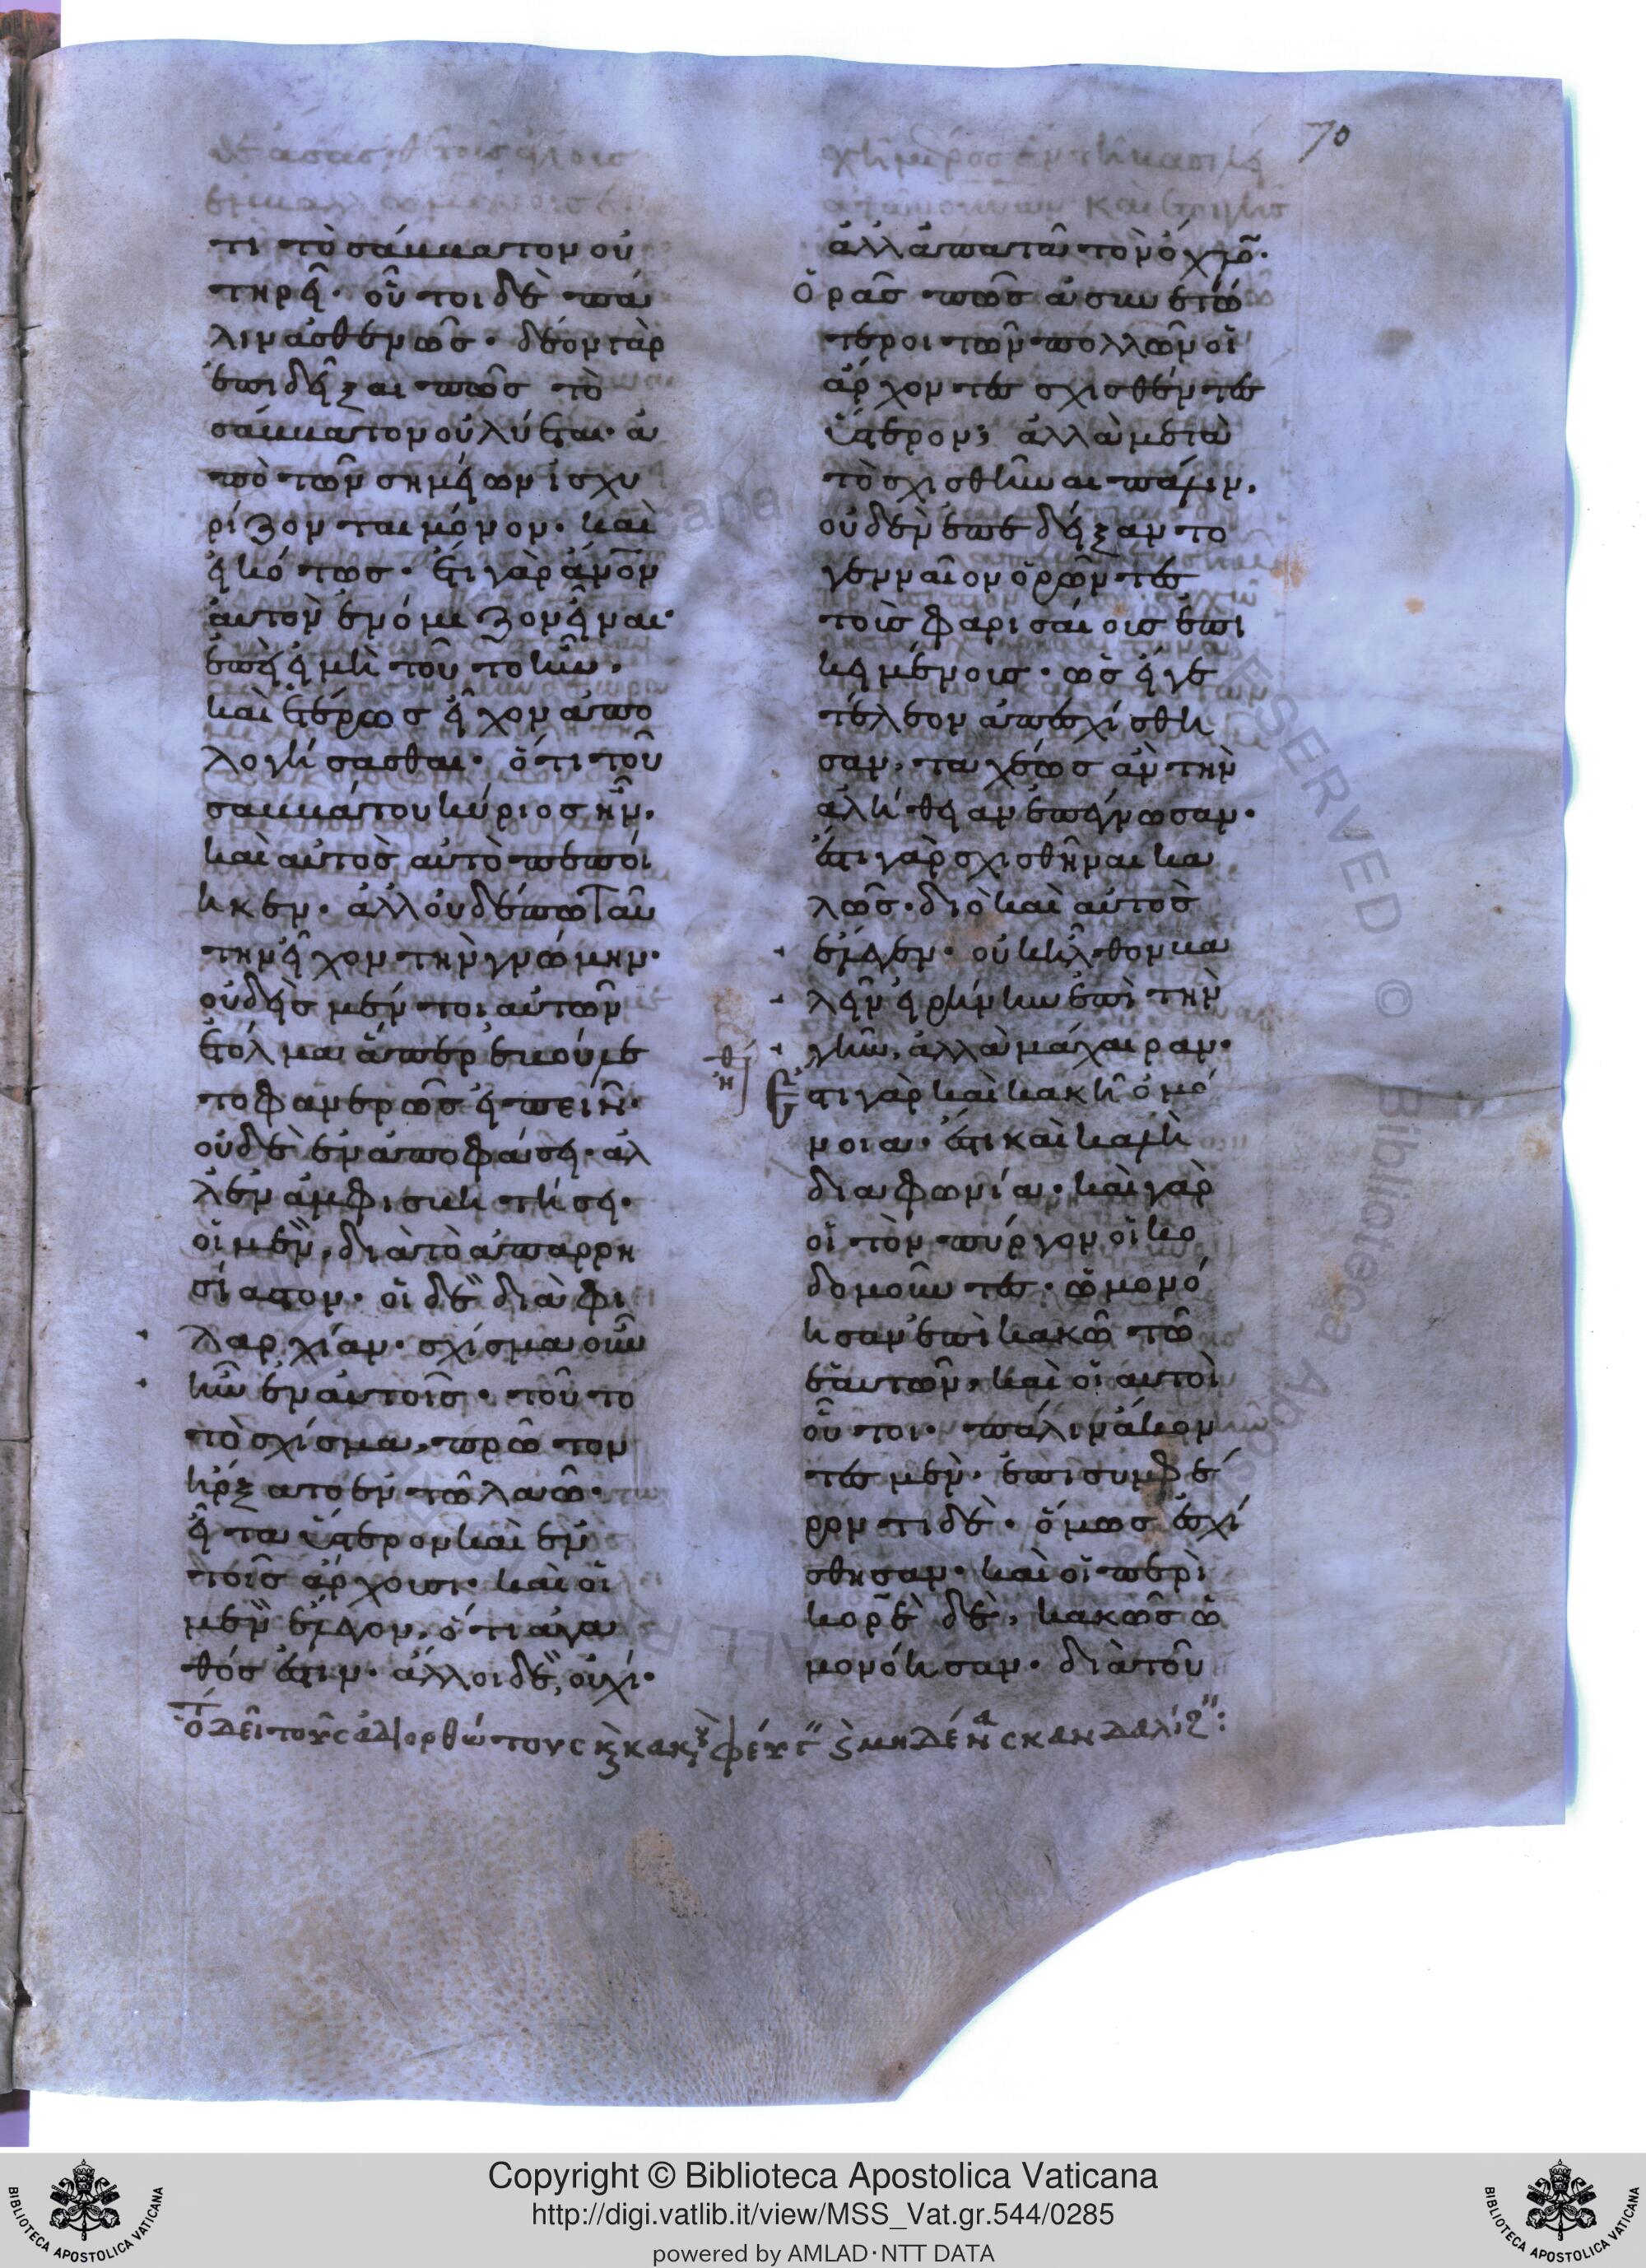 τι τὸ σάββατον οὐ
τηρεῖ· οὗτοι δὲ πά
λιν ἀσθενῶς· δέον γὰρ
ἐπιδεῖξαι πῶς τὸ
σάββατον οὐ λύεται· ἀ
πὸ τῶν σημείων ἰσχυ
ρίζονται μόνον· καὶ
εἰκότως· ἔτι γὰρ ἄνον
αὐτὸν ἐνόμιζον εἶναι·
ἐπεὶ εἰ μὴ τοῦτο ἦν,
καὶ ἑτέρως εἶχον ἀπο
λογήσασθαι· ὅτι τοῦ
σαββάτου κύριος ἦν,
καὶ αὐτὸς αὐτὸ πεποί
ηκεν· ἀλλ' οὐδέπω ταύ
την εἶχον τὴν γνώμην·
οὐδεὶς μέντοι αὐτῶν
ἐτόλμα ἅπερ ἐβούλε
το φανερῶς εἰπεῖν·
οὐδὲ ἐν ἀποφάσει· ἀλ
λ' ἐν ἀμφισβητήσει·
οἱ μὲν, διὰ τὸ ἀπαρρη
σίαστον· οἱ δὲ διὰ φι
λαρχίαν· σχίσμα οὖν
ἦν ἐν αὐτοῖς· τοῦτο
τὸ σχίσμα, πρῶτον
ἤρξατο ἐν τῷ λαῷ·
εἶτα ὕστερον καὶ ἐν
τοῖς ἄρχουσι· καὶ οἱ
μὲν ἔλεγον, ὅτι ἀγα
θός ἐστιν· ἄλλοι δὲ, οὐχί·
70
ἀλλὰ πατᾷ τὸν ὄχλον·
ὁρᾶς πῶς ἀσυνετώ
τεροι τῶν πολλῶν οἱ
ἄρχοντες σχισθέντες
ὕστερον; ἀλλὰ μετὰ
τὸ σχισθῆναι πάλιν,
οὐδὲν ἐπεδείξαντο
γενναῖον ὁρῶντες
τοῖς φαρισαίοις ἐπι
κειμένοις· ὡς εἴγε
τέλεον ἀπεσχίσθη
σαν, ταχέως ἂν τὴν
ἀλήθειαν ἐπέγνωσαν·
ἔστι γὰρ σχισθῆναι κα
λῶς· διὸ καὶ αὐτὸς
ἔλεγεν· οὐκ ἦλθον βα
λεῖν εἰρήνην ἐπὶ τὴν
γῆν, ἀλλὰ μάχαιραν·
Ἔστι γὰρ καὶ κακὴ ὁμό
νοια· ἔστι καὶ καλὴ
διαφωνία· καὶ γὰρ
οἱ τὸν πύργον οἰκο
δομοῦντες· ὡμονό
ησαν ἐπὶ κακῷ τῷ
ἑαυτῶν, καὶ οἱ αὐτοὶ
οὗτοι· πάλιν ἄκον
τες μὲν· ἐπὶ συμφέ
ροντι δὲ· ὅμως ἐσχί
σθησαν· καὶ οἱ περὶ
κορὲ δὲ, κακῶς ὡ
μονόησαν· διὰ τοῦ
δεῖ τοὺς ἀδιορθώτους
Copyright © Biblioteca Apostolica Vaticana
http://digi.vatlib.it/view/MSS_Vat.gr.544/0285
powered by AMLAD·NTT DATA